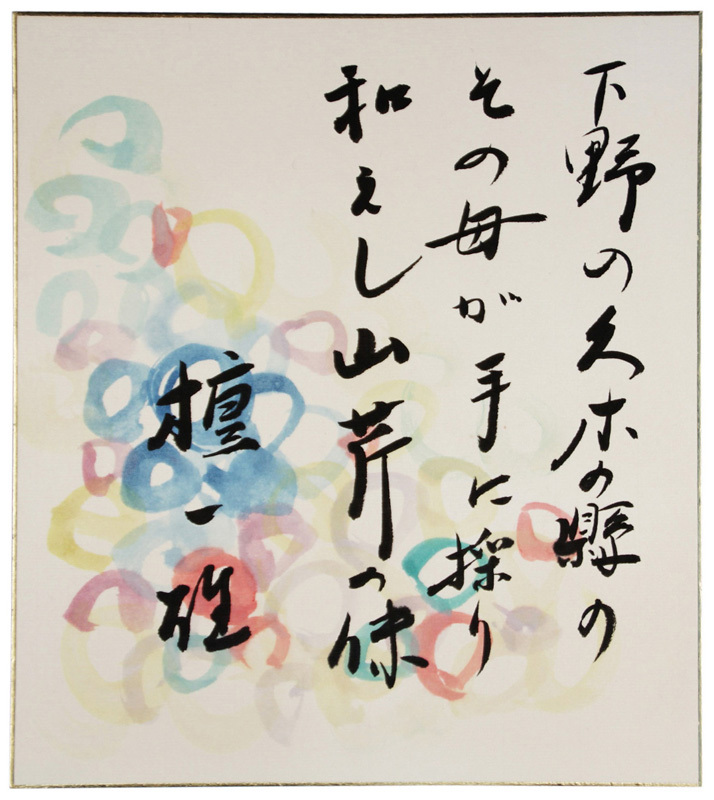 下野の久木の の
その母が手に採り
和えし山芹の味
檀一雄